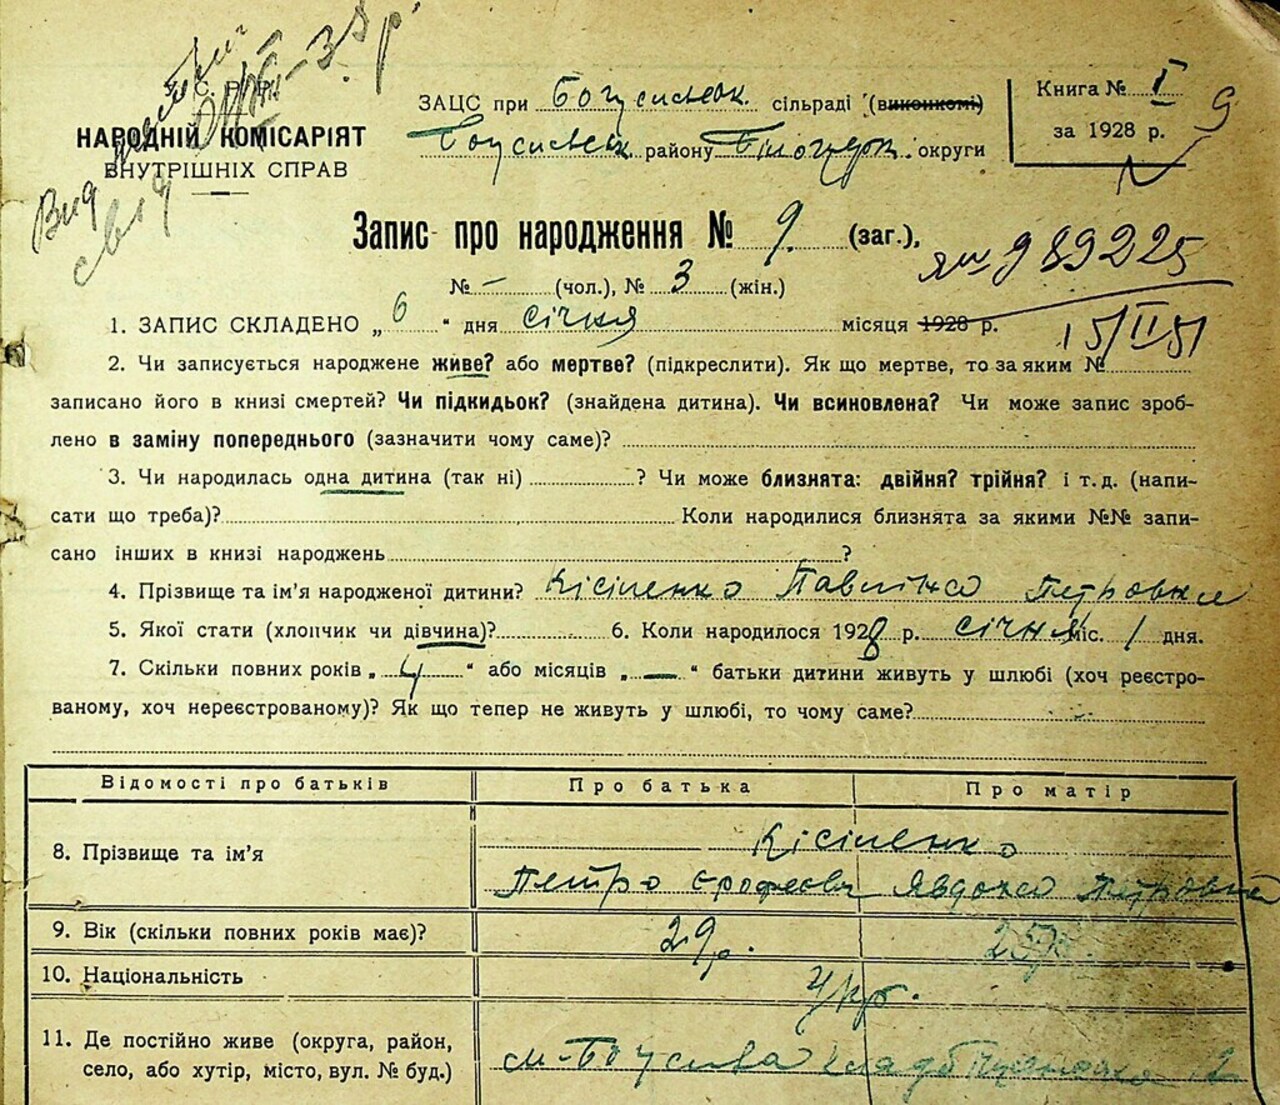 У.С.Р.Р.
НАРОДНІЙ КОМІСАРІЯТ
ВНУТРІШНІХ СПРАВ
Вид
свід
ЗАЦС при Богуславськ. сільраді (виконкомі)
Богуславськ. району Білоцерк. округи
Книга № I
за 1928 р.
9
Запис про народження № 9. (заг.),
№ – (чол.), № 3 (жін.)
989225
15/II 51
1. ЗАПИС СКЛАДЕНО „ 6 “ дня січня місяця 1928 р.
2. Чи записується народжене живе? або мертве? (підкреслити). Як що мертве, то за яким №
записано його в книзі смертей? Чи підкидьок? (знайдена дитина). Чи всиновлена? Чи може запис зроб-
лено в заміну попереднього (зазначити чому саме)?
3. Чи народилась одна дитина (так ні) ? Чи може близнята: двійня? трійня? і т. д. (напи-
сати що треба)? Коли народилися близнята за якими №№ запи-
сано інших в книзі народжень ?
4. Прізвище та ім’я народженої дитини? Кісіленко Павлінка Петровна
5. Якої стати (хлопчик чи дівчина)? 6. Коли народилося 1928 р. січня міс. 1 дня.
7. Скільки повних років „ 4 “ або місяців „ — “ батьки дитини живуть у шлюбі (хоч реєстро-
ваному, хоч нереєстрованому)? Як що тепер не живуть у шлюбі, то чому саме?
Відомості про батьків Про батька Про матір
8. Прізвище та ім’я Кісіленко
Петро Єрофеєвич Явдоха Петровна
9. Вік (скільки повних років має)? 29 р. 25 р.
10. Національність Укр.
11. Де постійно живе (округа, район,
село, або хутір, місто, вул. № буд.)
м-Богуслав